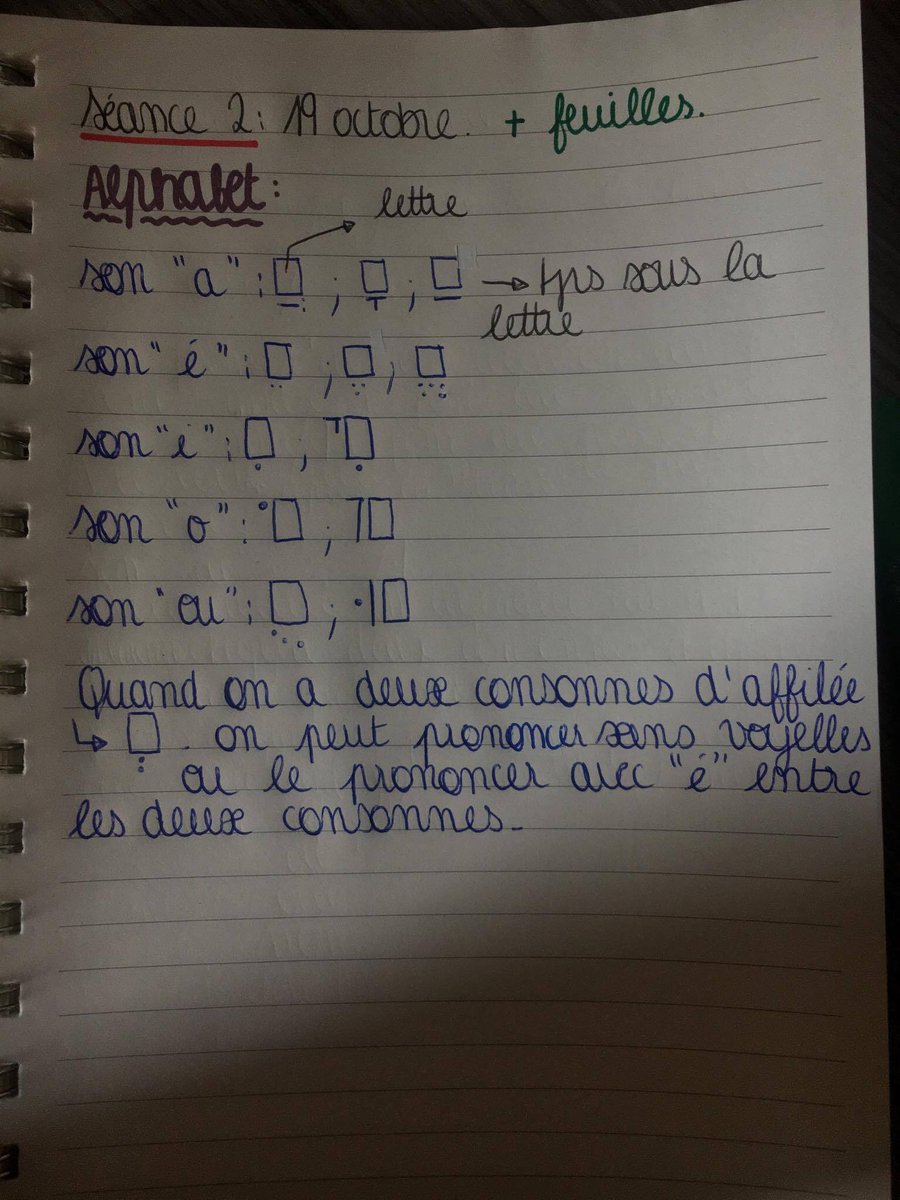 Séance 2 : 19 octobre. + feuilles.
Alphabet :
lettre
son "a" : □ ; □ ; □ → tjrs sous la
lettre
son "é" : □ ; □ ; □
son "i" : □ ; □
son "o" : □ ; □
son "ou" : □ ; □
Quand on a deux consonnes d'affilée
↳ □ . on peut prononcer sans voyelles
ou le prononcer avec "é" entre
les deux consonnes.